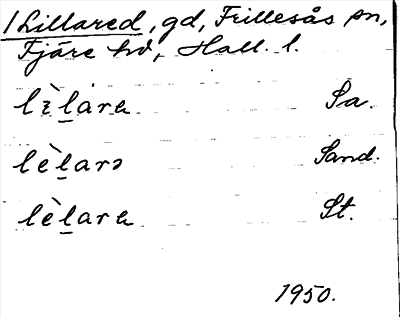 1 Lillared, gd, Frillesås sn,
Fjäre hd, Hall. l.
lìl̲ara Sa.
lèl̲arə Sand.
lèl̲ara St.
1950.